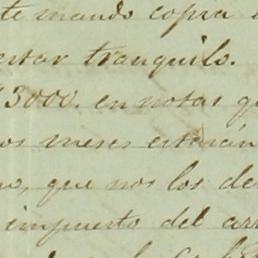 te mando copia
estar tranquilo.
$3000. en notas q
os meses estarán
que nos los de
impuesto del arr